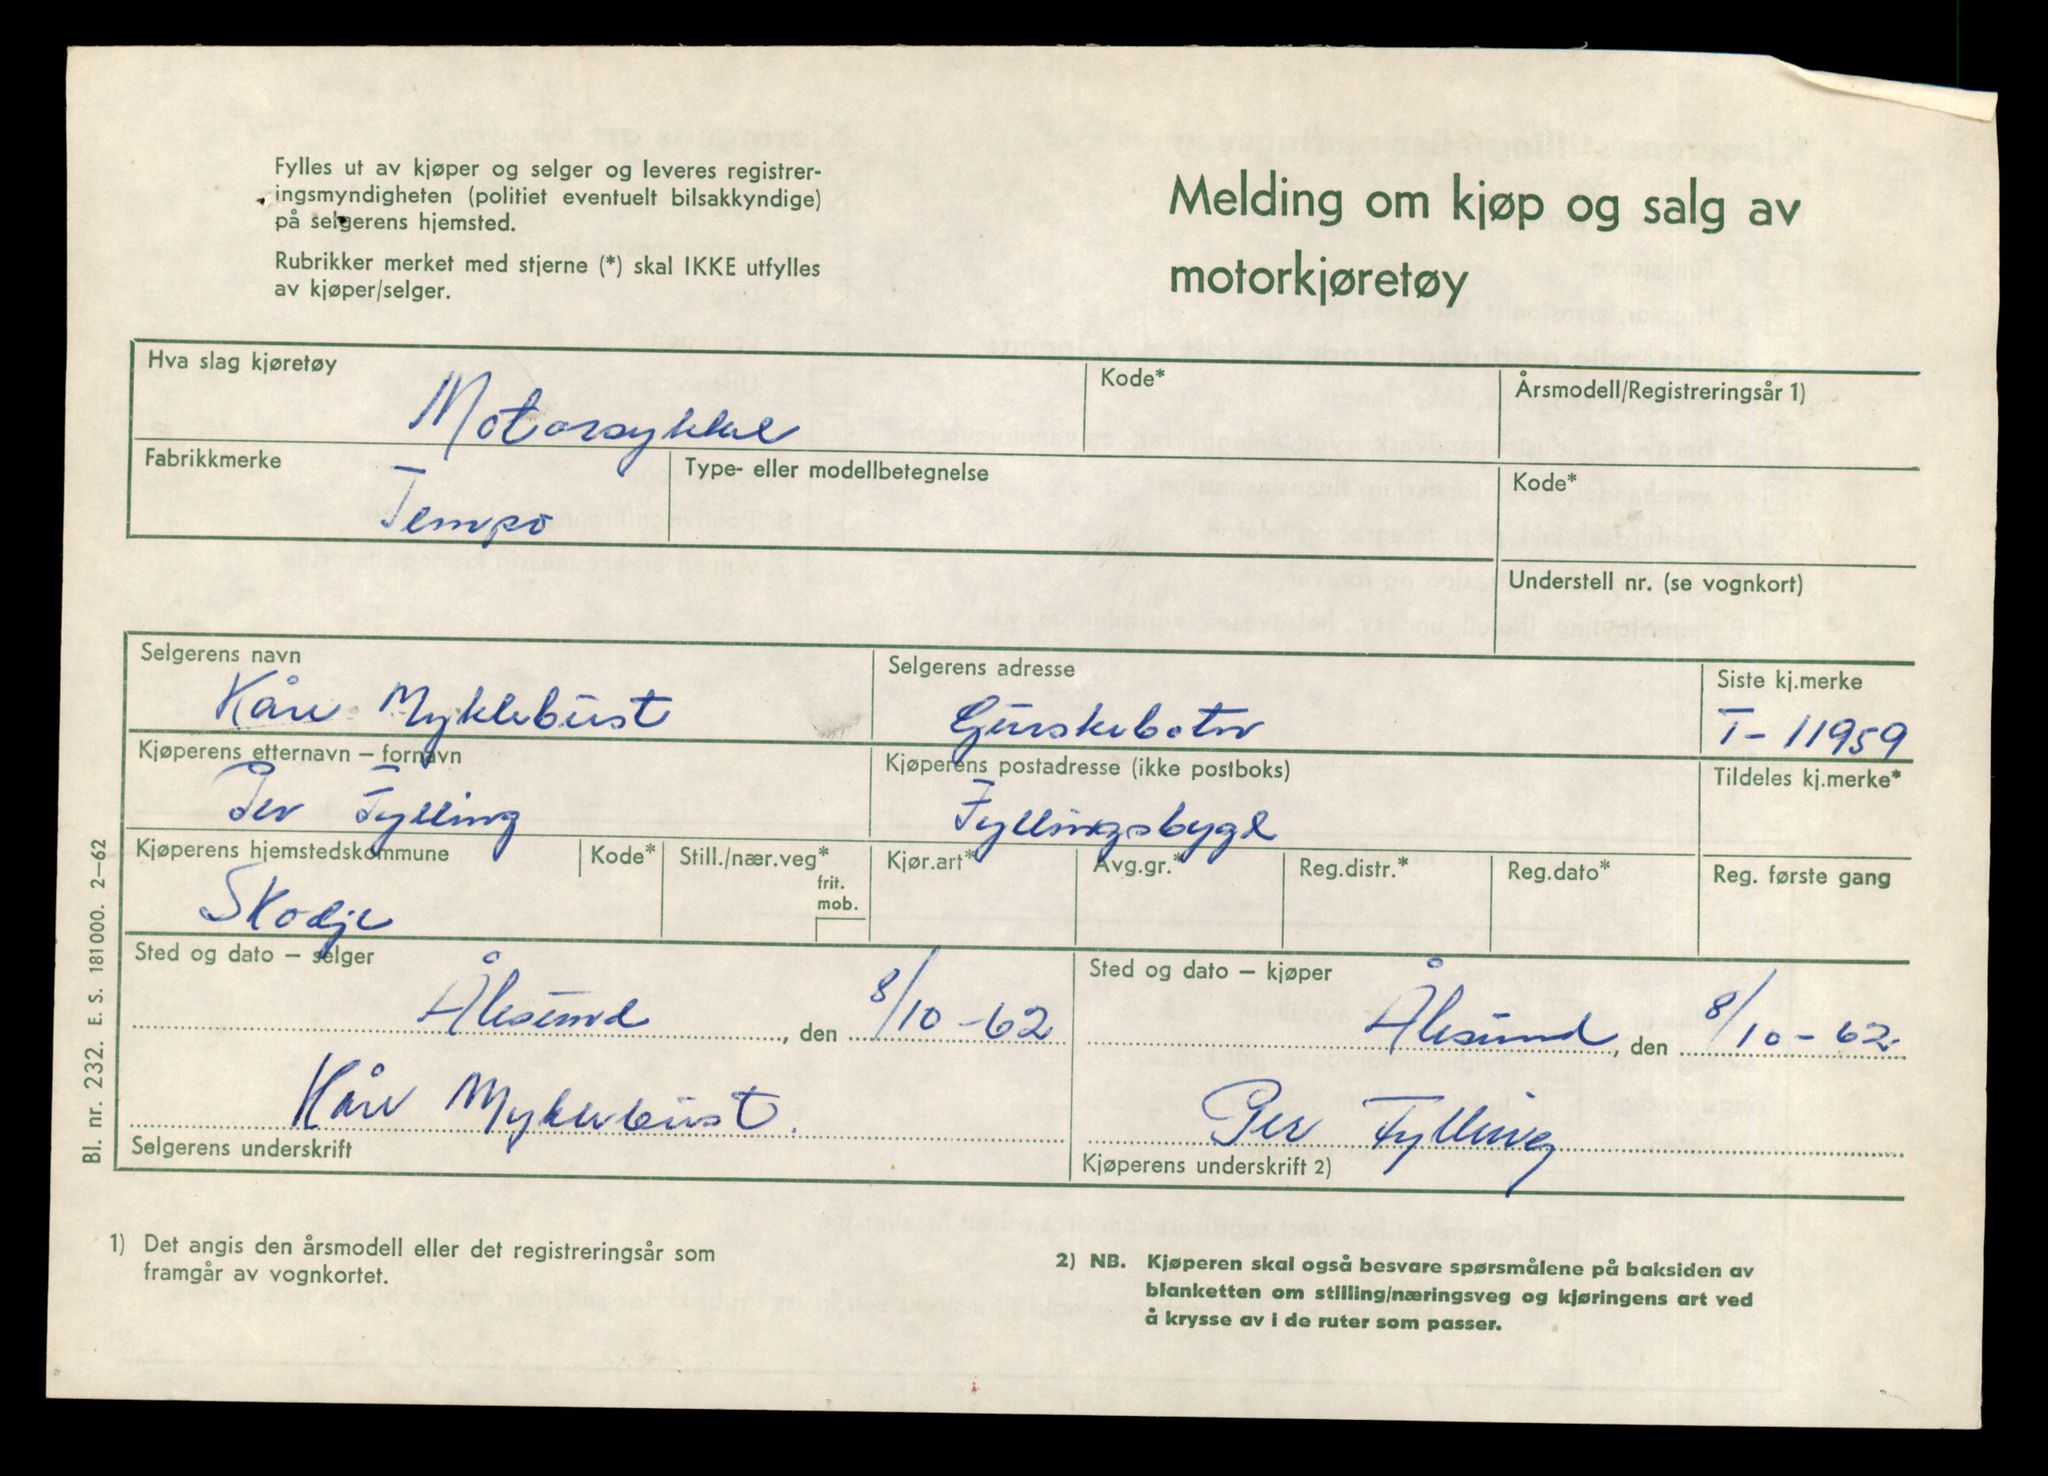 Fylles ut av kjøper og selger og leveres registrer-
ingsmyndigheten (politiet eventuelt bilsakkyndige)
på selgerens hjemsted.
Rubrikker merket med stjerne (*) skal IKKE utfylles
av kjøper/selger.
Melding om kjøp og salg av
motorkjøretøy
Hva slag kjøretøy
Motorsykkel
Kode*
Årsmodell/Registreringsår 1)
Fabrikkmerke
Tempo
Type- eller modellbetegnelse
Kode*
Understell nr. (se vognkort)
Selgerens navn
Kåre Myklebust
Selgerens adresse
Gurskebotn
Siste kj.merke
T-11959
Kjøperens etternavn – fornavn
Per Fylling
Kjøperens postadresse (ikke postboks)
Fyllingsbygd
Tildeles kj.merke*
Kjøperens hjemstedskommune
Skodje
Kode*
Still./nær.veg*
frit.
mob.
Kjør.art*
Avg.gr.*
Reg.distr.*
Reg.dato*
Reg. første gang
Sted og dato – selger
Ålesund, den 8/10-62
Kåre Myklebust.
Selgerens underskrift
Sted og dato – kjøper
Ålesund, den 8/10-62
Per Fylling
Kjøperens underskrift 2)
Bl. nr. 232. E. S. 181000. 2–62
1) Det angis den årsmodell eller det registreringsår som
framgår av vognkortet.
2) NB. Kjøperen skal også besvare spørsmålene på baksiden av
blanketten om stilling/næringsveg og kjøringens art ved
å krysse av i de ruter som passer.